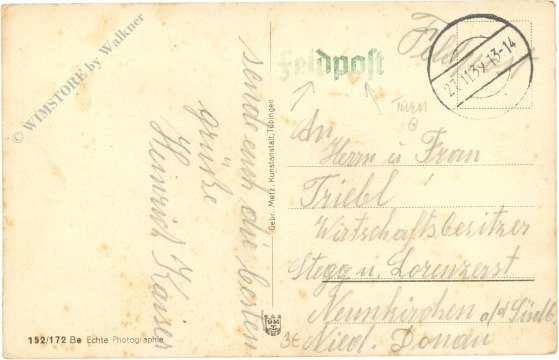 © WIMSTORE by Walkner
sende euch die besten
Grüße
Heinrich Kaiser
152/172 Be Echte Photographie
Gebr. Metz, Kunstanstalt, Tübingen
Feldpost
Feldpost
27.11.39.13-14
Tarn
B
An
Herrn u Frau
Triebl
Wirtschaftsbesitzer
Stegg u. Lorenzerst
Neunkirchen a/d Südb.
Nied. Donau
3€